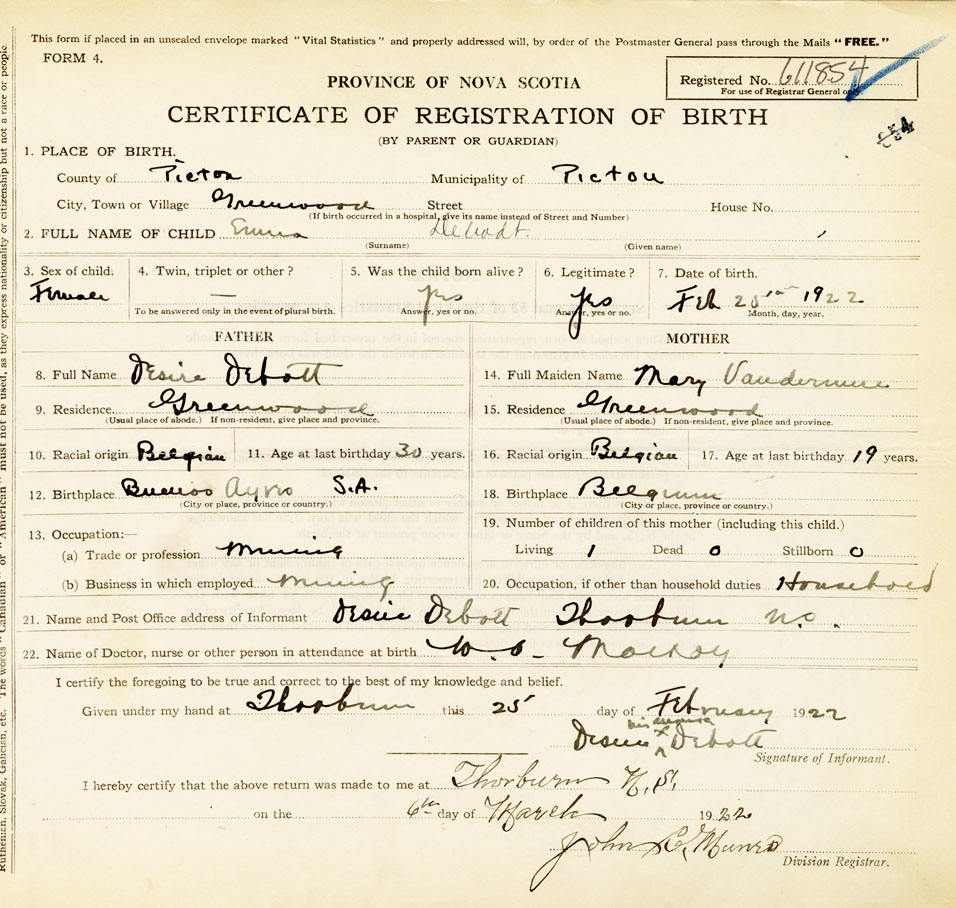 This form if placed in an unsealed envelope marked "Vital Statistics" and properly addressed will, by order of the Postmaster General pass through the Mails "FREE."
FORM 4.
PROVINCE OF NOVA SCOTIA
Registered No. 611854
For use of Registrar General only.
CERTIFICATE OF REGISTRATION OF BIRTH
854
(BY PARENT OR GUARDIAN)
1. PLACE OF BIRTH.
County of Pictou Municipality of Pictou
City, Town or Village Greenwood Street House No.
(If birth occurred in a hospital, give its name instead of Street and Number)
2. FULL NAME OF CHILD Emma Debodt.
(Surname) (Given name)
3. Sex of child: 4. Twin, triplet or other? 5. Was the child born alive? 6. Legitimate? 7. Date of birth.
Female — yes yes Feb 1922
To be answered only in the event of plural birth. Answer, yes or no. Answer, yes or no. Month, day, year.
FATHER MOTHER
8. Full Name Desire Debott 14. Full Maiden Name Mary
9. Residence Greenwood 15. Residence Greenwood
(Usual place of abode.) If non-resident, give place and province. (Usual place of abode.) If non-resident, give place and province.
10. Racial origin Belgian 11. Age at last birthday 30 years. 16. Racial origin Belgian 17. Age at last birthday 19 years.
12. Birthplace Buenos Ayres S.A. 18. Birthplace Belgium
(City or place, province or country.) (City or place, province or country.)
13. Occupation:— 19. Number of children of this mother (including this child.)
(a) Trade or profession Mining Living 1 Dead 0 Stillborn 0
(b) Business in which employed Mining 20. Occupation, if other than household duties Household
21. Name and Post Office address of Informant Desire Debott Thorburn N.S.
22. Name of Doctor, nurse or other person in attendance at birth W.
I certify the foregoing to be true and correct to the best of my knowledge and belief.
Given under my hand at Thorburn this 25 day of February 1922
his
Desire X Debott
Signature of Informant.
I hereby certify that the above return was made to me at Thorburn N.S.
on the 6th day of March 1922
John Munro
Division Registrar.
Ruthenian, Slovak, Galician, etc. The words "Canadian" or "American" must not be used, as they express nationality or citizenship but not a race or people.